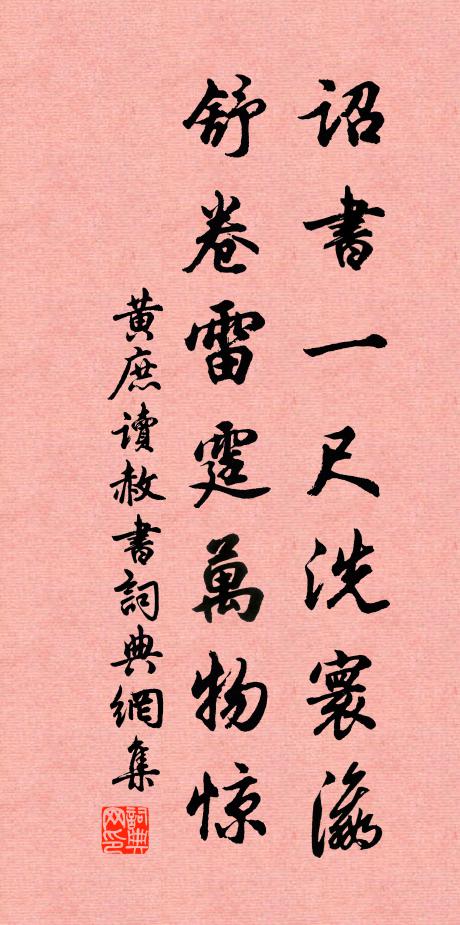 詔書一尺洗寰瀛
舒卷雷霆萬物惊
黃庶讀赦書詞典網集
詞典网印